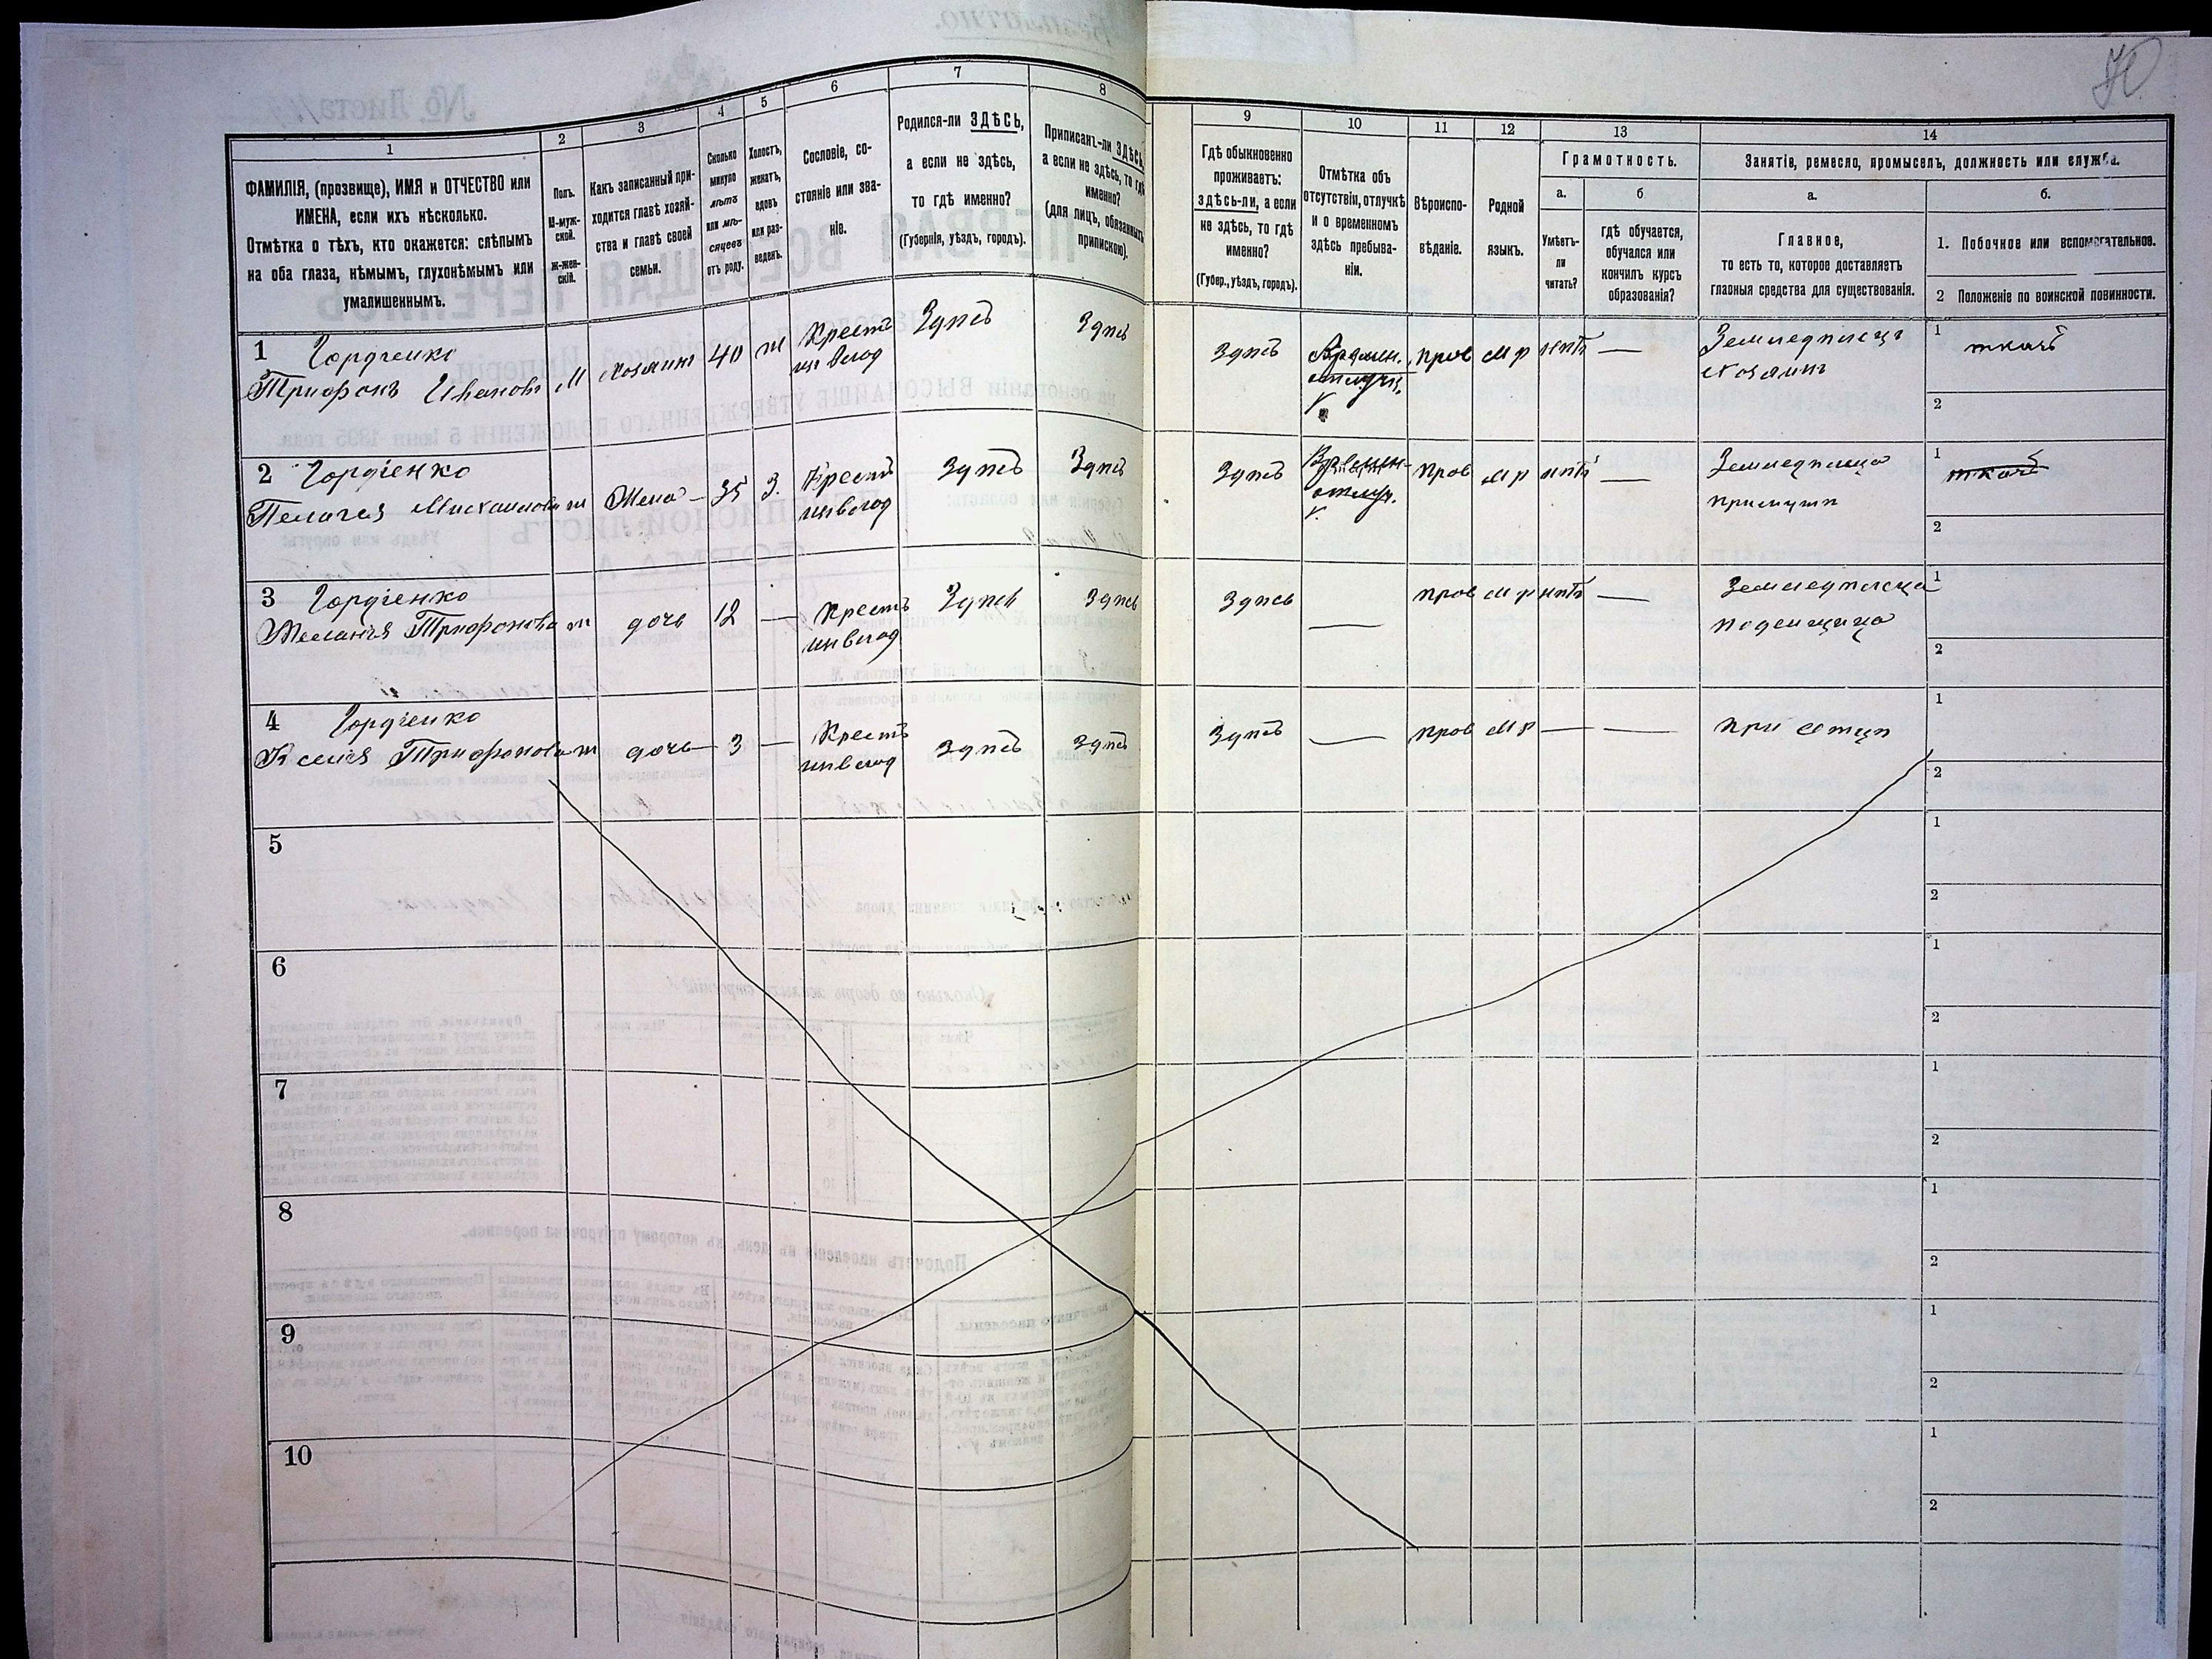 70
1
2
3
4
5
6
7
8
9
10
11
12
13
14
ФАМИЛІЯ, (прозвище), ИМЯ и ОТЧЕСТВО или
ИМЕНА, если ихъ нѣсколько.
Отмѣтка о тѣхъ, кто окажется: слѣпымъ
на оба глаза, нѣмымъ, глухонѣмымъ или
умалишеннымъ.
Полъ.
М-муж-
ской.
Ж-жен-
скій.
Какъ записанный при-
ходится главѣ хозяй-
ства и главѣ своей
семьи.
Сколько
минуло
лѣтъ
или мѣ-
сяцевъ
отъ роду.
Холостъ,
женатъ,
вдовъ
или раз-
веденъ.
Сословіе, со-
стояніе или зва-
ніе.
Родился-ли ЗДѢСЬ,
а если не здѣсь,
то гдѣ именно?
(Губернія, уѣздъ, городъ).
Приписанъ-ли ЗДѢСЬ,
а если не здѣсь, то гдѣ
именно?
(для лицъ, обязанныхъ
припискою).
Гдѣ обыкновенно
проживаетъ:
здѣсь-ли, а если
не здѣсь, то гдѣ
именно?
(Губер., уѣздъ, городъ).
Отмѣтка объ
отсутствіи, отлучкѣ
и о временномъ
здѣсь пребыва-
ніи.
Вѣроиспо-
вѣданіе.
Родной
языкъ.
Грамотность.
а.
б
Умѣетъ-
ли
читать?
гдѣ обучается,
обучался или
кончилъ курсъ
образованія?
Занятіе, ремесло, промыселъ, должность или служба.
а.
б.
Главное,
то есть то, которое доставляетъ
главныя средства для существованія.
1. Побочное или вспомогательное.
2 Положеніе по воинской повинности.
1 Гордіенко
Трифонъ Ивановъ М Хозяинъ 40 ж Крест
из влад Здѣсь Здѣсь Здѣсь Времен.
отлуч. Прав М р нѣтъ — Земледѣлецъ
Хозяинъ 1 ткачъ
2
2 Гордіенко
Пелагея Михаиловна ж Жена — 35 З. Крест
из влад Здѣсь Здѣсь Здѣсь Времен-
отлуч. Прав М р нѣтъ — Земледѣлица
при мужѣ 1 ткачъ
2
3 Гордіенко
Меланія Трифонова ж дочь 12 — Крест
из влад Здѣсь Здѣсь Здѣсь — Прав М р нѣтъ — Земледѣлица
поденщица 1
2
4 Гордіенко
Ксенія Трифонова ж дочь — 3 — Крест
из влад Здѣсь Здѣсь Здѣсь — Прав М р — — при отцѣ 1
2
5 1
2
6 1
2
7 1
2
8 1
2
9 1
2
10 1
2